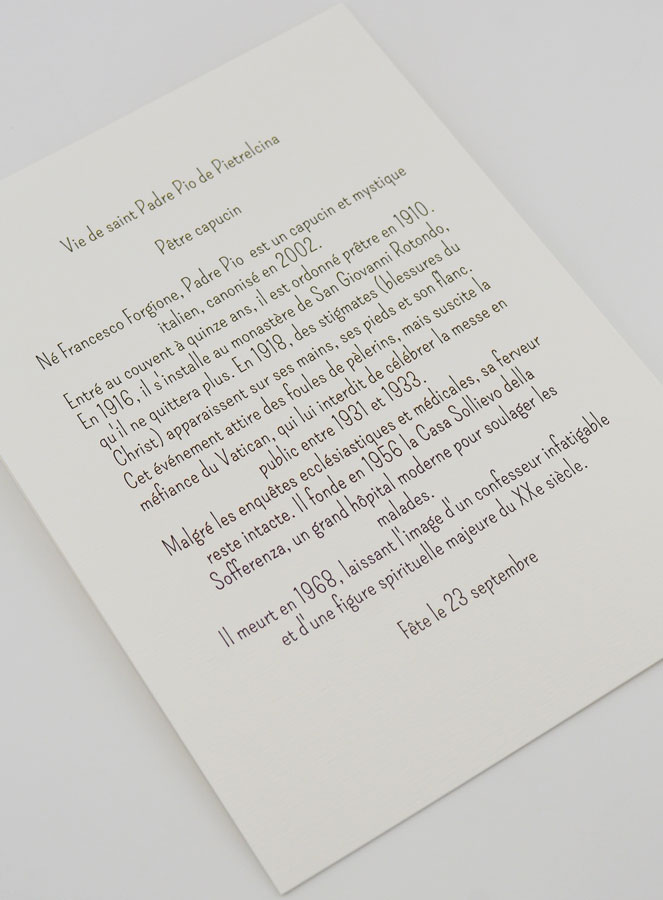 Vie de saint Padre Pio de Pietrelcina
Pêtre capucin
Né Francesco Forgione, Padre Pio est un capucin et mystique
italien, canonisé en 2002.
Entré au couvent à quinze ans, il est ordonné prêtre en 1910.
En 1916, il s'installe au monastère de San Giovanni Rotondo,
qu'il ne quittera plus. En 1918, des stigmates (blessures du
Christ) apparaissent sur ses mains, ses pieds et son flanc.
Cet événement attire des foules de pèlerins, mais suscite la
méfiance du Vatican, qui lui interdit de célébrer la messe en
public entre 1931 et 1933.
Malgré les enquêtes ecclésiastiques et médicales, sa ferveur
reste intacte. Il fonde en 1956 la Casa Sollievo della
Sofferenza, un grand hôpital moderne pour soulager les
malades.
Il meurt en 1968, laissant l'image d'un confesseur infatigable
et d'une figure spirituelle majeure du XXe siècle.
Fête le 23 septembre